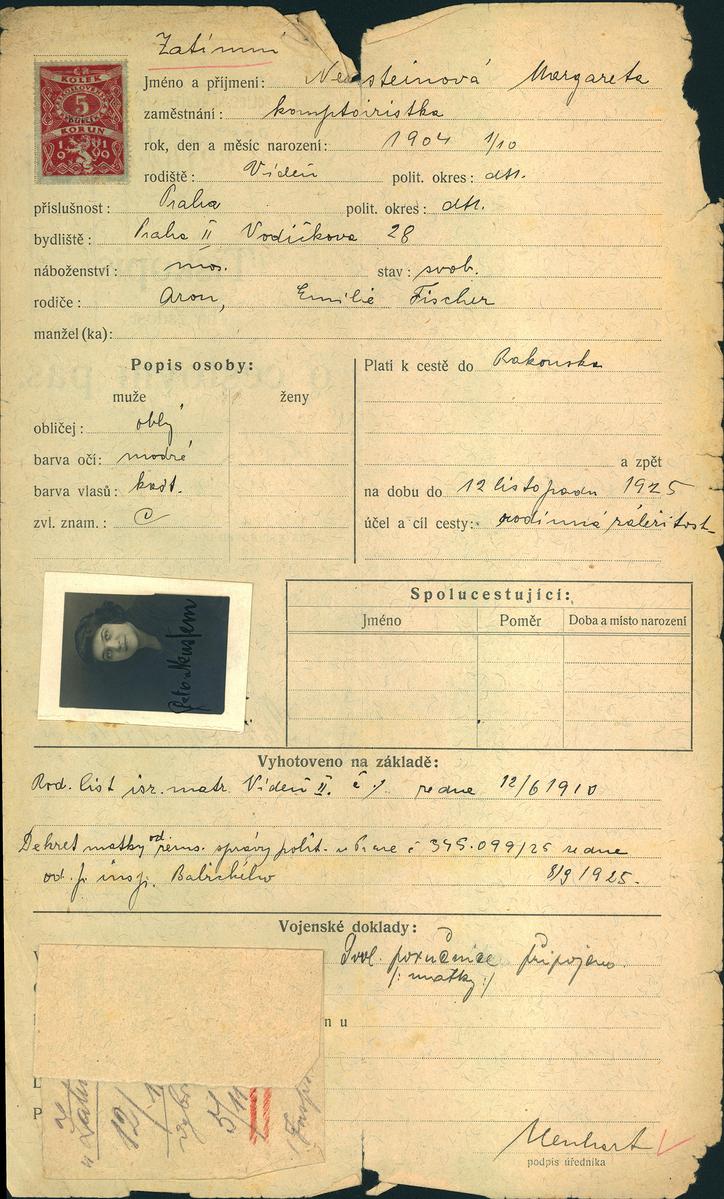 Zatímní
KOLEK
5
KORUN
1919
Jméno a příjmení: Neusteinová Margareta
zaměstnání: komptoiristka
rok, den a měsíc narození: 1904 1/10
rodiště: Vídeň polit. okres: dtt.
příslušnost: Praha polit. okres: dtt.
bydliště: Praha II Vodičkova 28
náboženství: mos. stav: svob.
rodiče: Aron, Emilie Fischer
manžel (ka):
Popis osoby:
muže ženy
obličej: oblý
barva očí: modré
barva vlasů: kašt.
zvl. znam.:
Platí k cestě do Rakouska
a zpět
na dobu do 12 listopadu 1925
účel a cíl cesty: rodinná záležitost
Spolucestující:
Jméno Poměr Doba a místo narození
Vyhotoveno na základě:
Rod. list isr. matr. Vídeň II. č /. ze dne 12/6 1910
Dekret matky od zems. správy polit. v Praze č 345.099/25 ze dne
od. p. insp. 8/9 1925.
Vojenské doklady:
Svol. poručnice připojeno
/: matky :/
n u
12/
5/11
Menhart
podpis úředníka